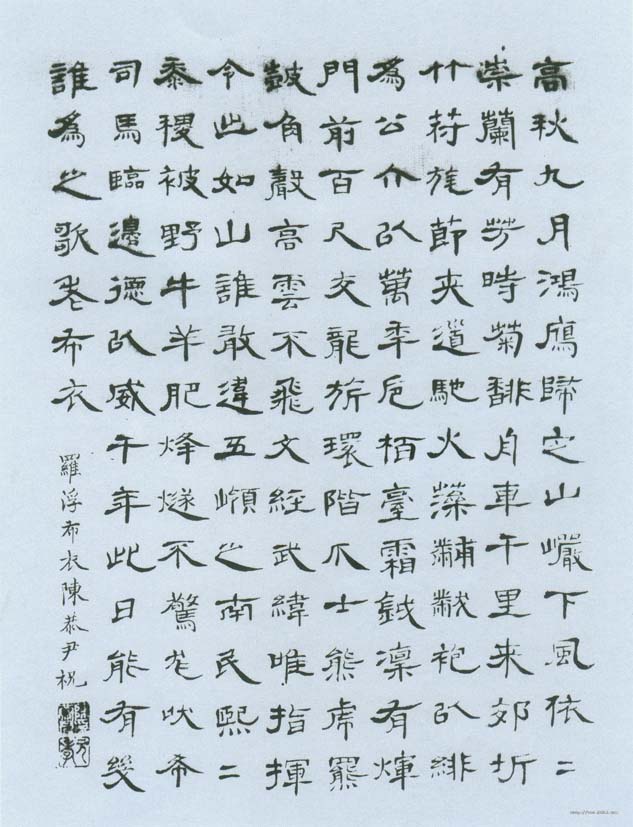 高秋九月鴻鴈歸定山巖下風依二
崇蘭有芳時菊馡車千里来郊圻
竹苻旄節夾道馳火藻黼黻袍以緋
為公介以萬年卮栢臺霜鉞凜有煇
門前百尺交龍旂環階爪士熊虎羆
鼓角聲高雲不飛文經武緯唯指揮
令此如山誰敢違五嶺之南民熙二
黍稷被野牛羊肥烽燧不驚尨吠希
司馬臨邊德以威千年此日能有幾
誰為之歌老布衣
羅浮布衣陳恭尹祝